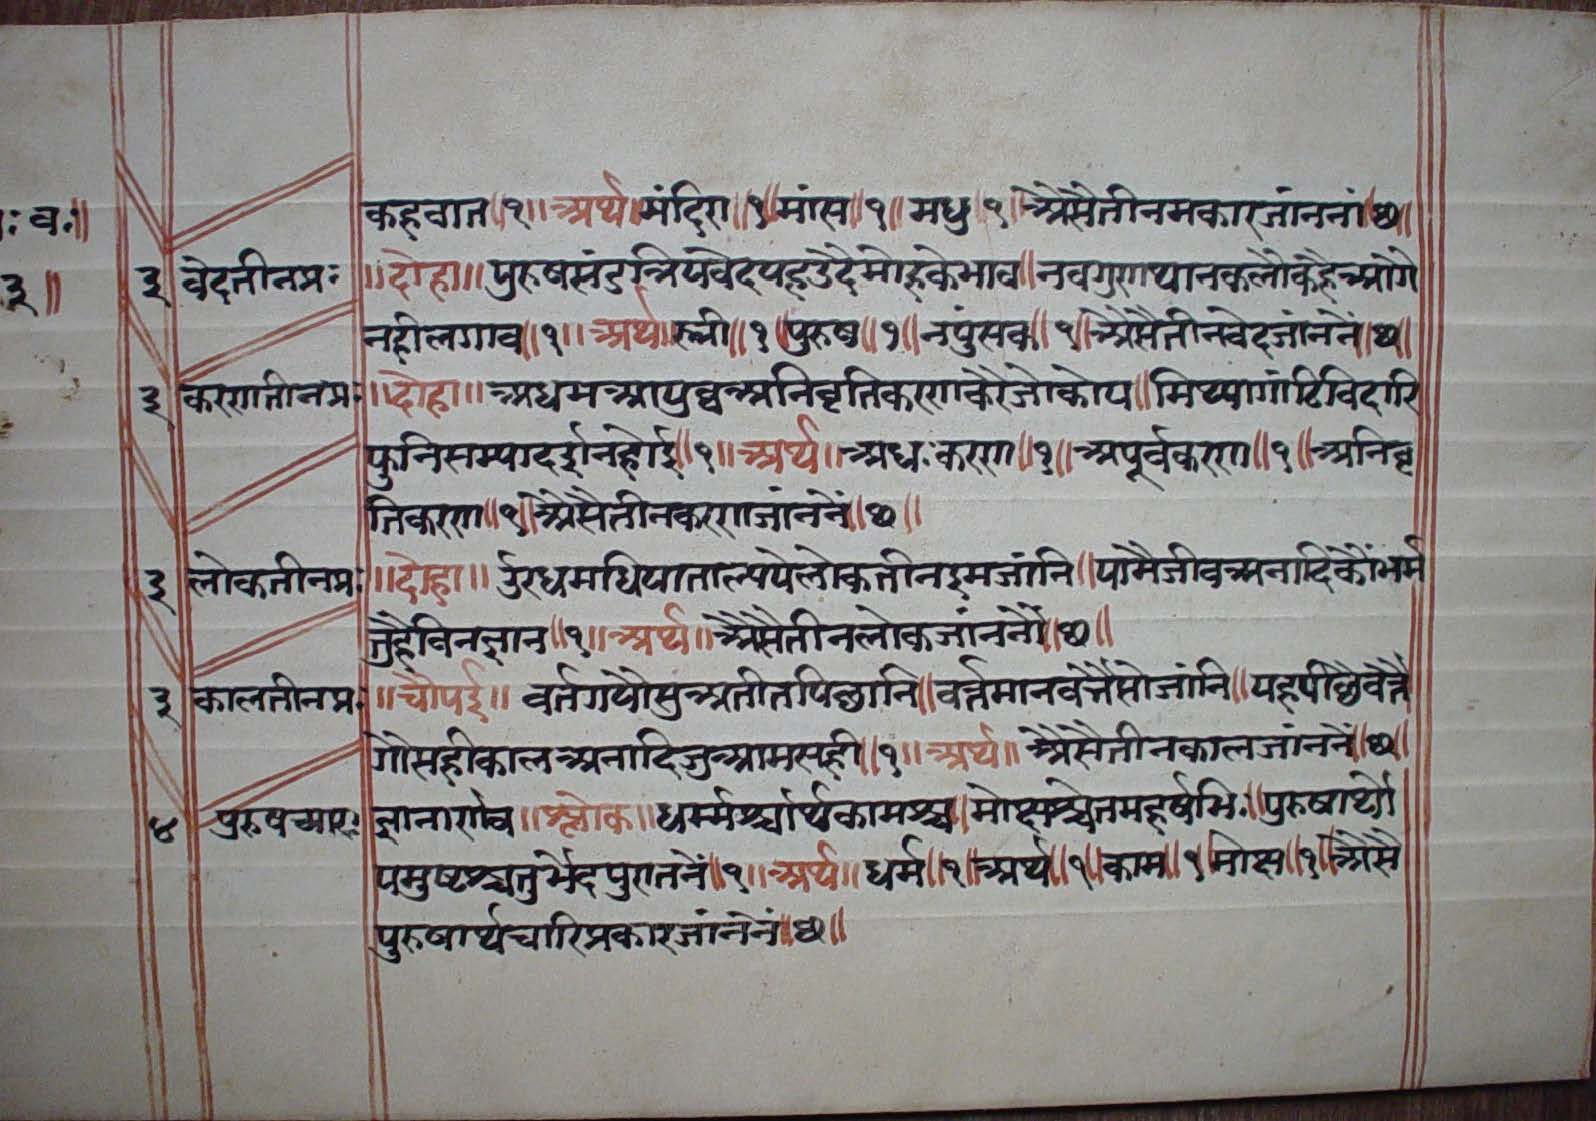 कहवात ॥१॥ अर्थ ॥ मंदिरा ॥१॥ मांस ॥१॥ मधु ॥१॥ अैसैतीनमकारजांननां ॥छ॥
: व: ॥
३ वेदतीनप्र: ॥ दोहा ॥ पुरुषसंडत्रियवेदयहउदैमोहकेभाव ॥ नवगुणथानकलौंकहैआगै
३ ॥
नहीलगाव ॥१॥ अर्थ ॥ स्त्री ॥१॥ पुरुष ॥१॥ नपुंसक ॥१॥ अैसैतीनवेदजांननें ॥छ॥
३ करणतीनप्र: ॥ दोहा ॥ अधमआपुव्वअनिवृतिकरणकरैजोकोय ॥ मिथ्यागांठिविदारि
फुनिसम्यादर्इनहोई ॥१॥ अर्थ ॥ अध:करण ॥१॥ अपूर्वकरण ॥१॥ अनिवृ
तिकरण ॥१॥ अैसैतीनकरणजांननें ॥छ॥
३ लोकतीनप्र: ॥ दोहा ॥ उरधमधिपातालययेलोकतीनइमजांनि ॥ यामैजीवअनादिकौंभर्म
तुहैविनज्ञान ॥१॥ अर्थ ॥ अैसैतीनलोकजांननौं ॥छ॥
३ कालतीनप्र: ॥ चौपई ॥ वर्तगयौसुअतीतपिछानि ॥ वर्त्तमानवर्त्तैसोजांनि ॥ यहपीछैवर्त्तै
गोसहीकालअनादिजुआमसही ॥१॥ अर्थ ॥ अैसैतीनकालजांननें ॥छ॥
४ पुरुषच्यार: ज्ञानार्णव ॥ श्लोक ॥ धर्म्मर्श्चार्थकामश्च ॥ मोक्षश्चेतमहर्षभि: ॥ पुरुषार्थ्यो
यमुष्टश्चतुर्भेदपुरातनें ॥१॥ अर्थ ॥ धर्म ॥१॥ अर्थ ॥१॥ काम ॥१॥ मोक्ष ॥१॥ अैसै
पुरुषार्थचारिप्रकारजांननें ॥छ॥